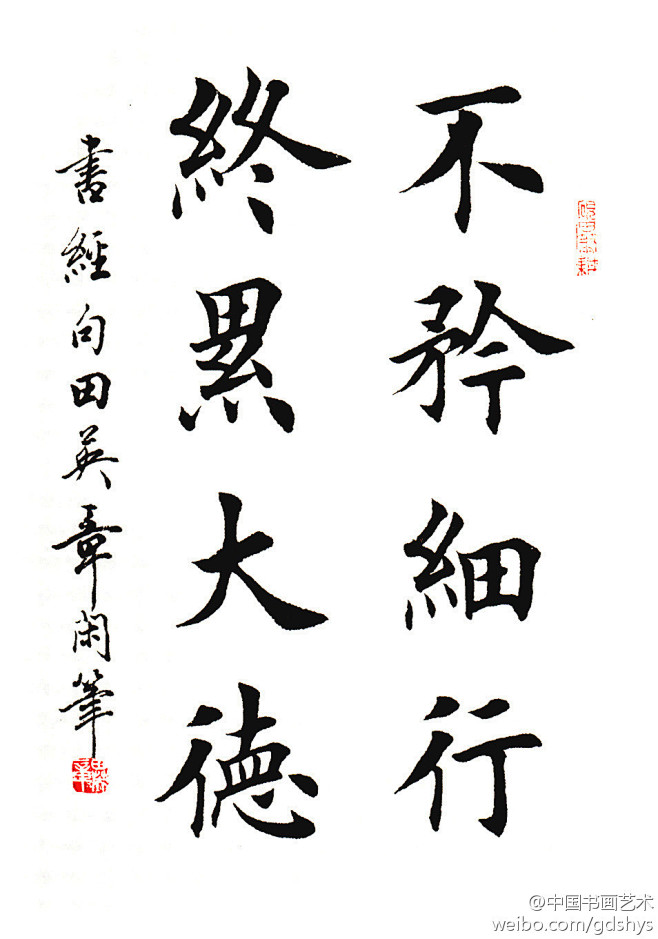 不矜细行
終累大德
書經句田英章閑筆
@中国书画艺术
weibo.com/gdshys